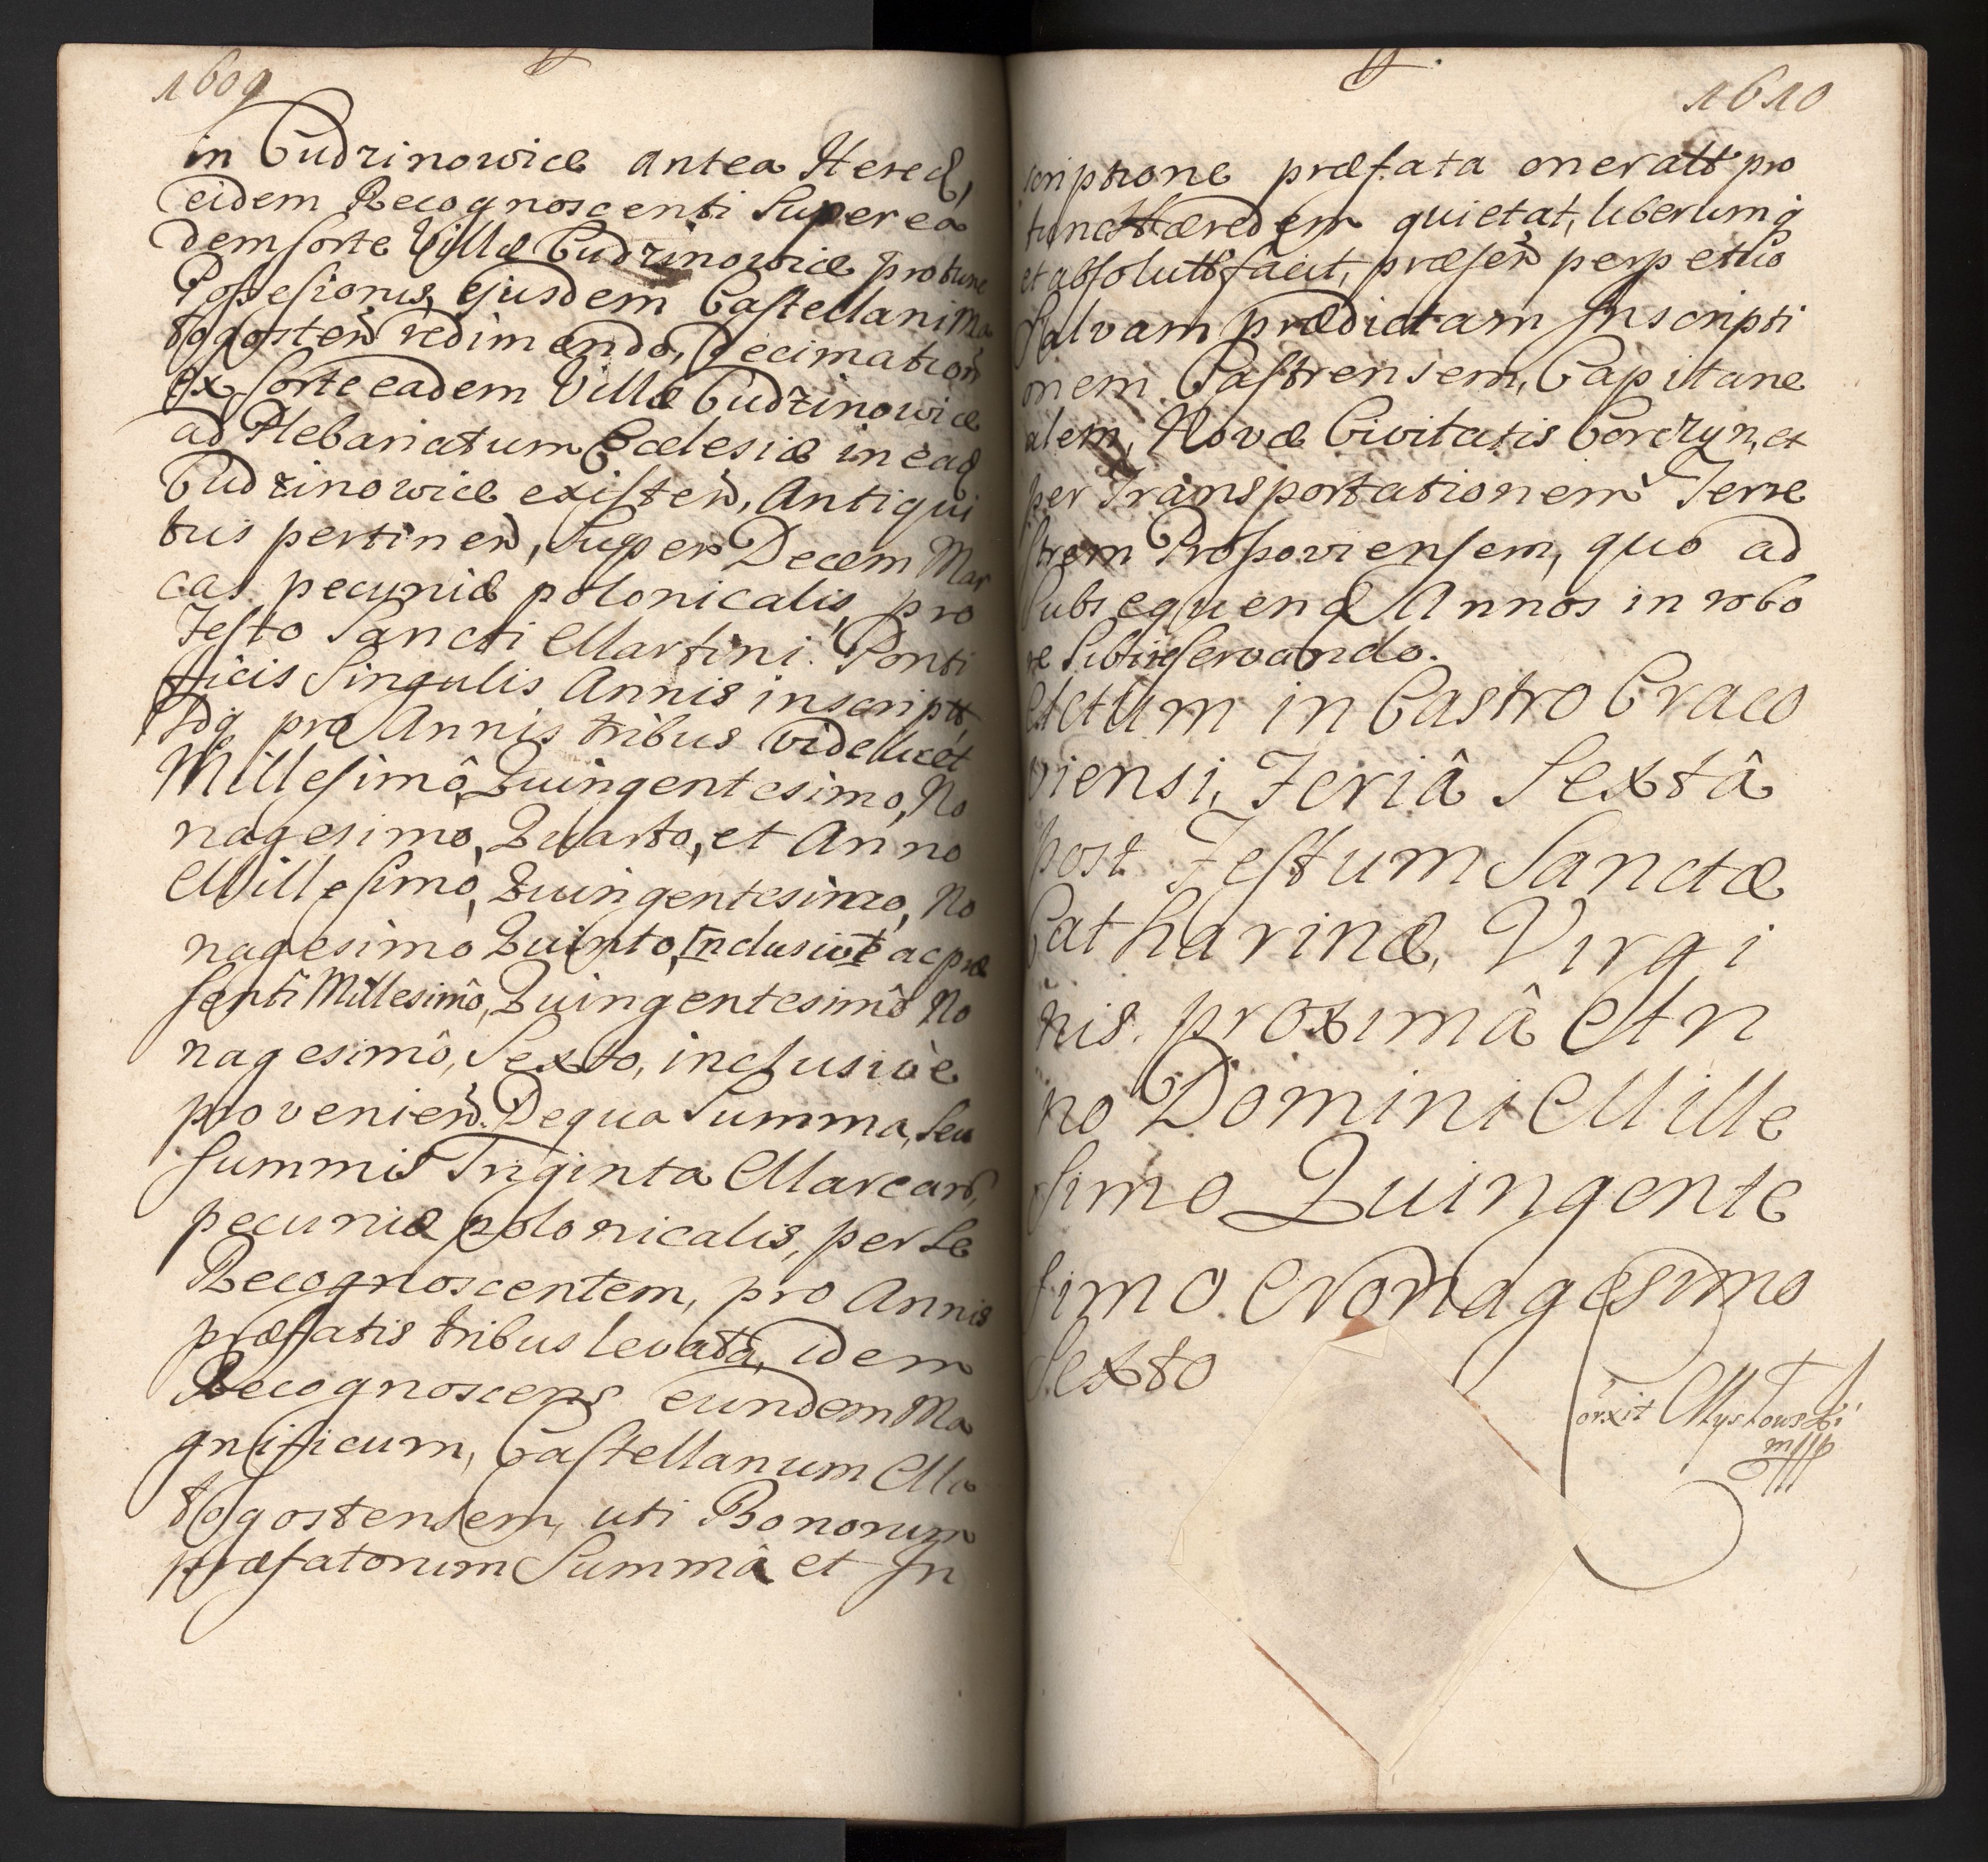 1609
in Cudzinowice antea Hered,
eidem Recognoscenti Super ea
dem sorte Villæ Cudzinowice pro tunc
Possesionis, ejusdem Castellani Ma
łogosten redimendo, Decimation
ex sorte eadem Villæ Cudzinowice
ad Plebanatum Ecclesiæ in ead
Cudzinowice existen, Antiqui
tus pertinen, Super Decem Mar
cas pecuniæ polonicalis, pro
Festo Sancti Martini Ponti
ficis Singulis Annis inscriptt
Idq pro Annis tribus videlicet
Millesimô, Quingentesimo, No
nagesimo, Quarto, et Anno
Millesimo, Quingentesimo, No
nagesimo Quinto, Inclusivè ac præ
senti Millesimô, Quingentesimô No
nagesimô, Sexto, inclusivè
provenien. De qua Summa, Seu
Summis Triginta Marcar,
pecuniæ polonicalis, per Se
Recognoscentem, pro Annis
præfatis tribus levata, idem
Recognoscens eundem Ma
gnificum, Castellanum Ma
łogostensem, uti Bonorum
præfatorum Summâ et In
1610
scriptione præfata oneratt pro
tunc Hæredem quietat, liberumq
et absolutt facit, præsen perpettuo
Salvam prædictam Inscripti
onem Castrensem, Capitane
alem, Novæ Civitatis Corczyn, et
per Transportationem Terre
strem Prosoviensem, quo ad
Subsequend Annos in robo
re Subinservando.
Actum in Castro Craco
viensi, Feriâ Sextâ
post Festum Sanctæ
Catharinæ, Virgi
nis. proximâ An
no Domini Mille
simo Quingente
simo Nonagesimo
Sexto
orxit Mysłowski
mppp